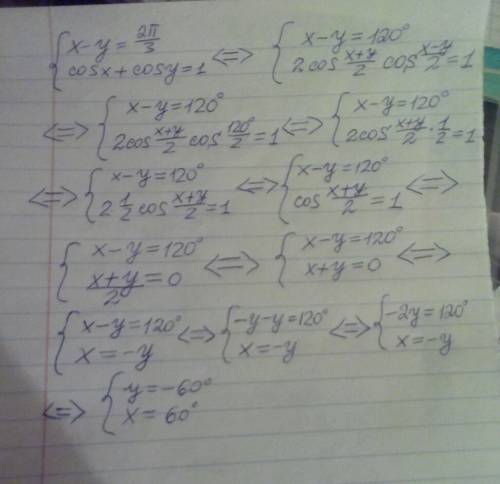 { x-y = 2π/3 ; cosx + cosy = 1 <=> { x-y = 120° ; 2cos (x+y)/2 cos (x-y)/2 = 1
<=> { x-y = 120° ; 2cos (x+y)/2 cos 120°/2 = 1 <=> { x-y = 120° ; 2cos (x+y)/2 · 1/2 = 1
<=> { x-y = 120° ; 2 1/2 cos (x+y)/2 = 1 <=> { x-y = 120° ; cos (x+y)/2 = 1 <=>
{ x-y = 120° ; (x+y)/2 = 0 <=> { x-y = 120° ; x+y = 0 <=>
{ x-y = 120° ; x = -y <=> { -y-y = 120° ; x = -y <=> { -2y = 120° ; x = -y
<=> { y = -60° ; x = 60°